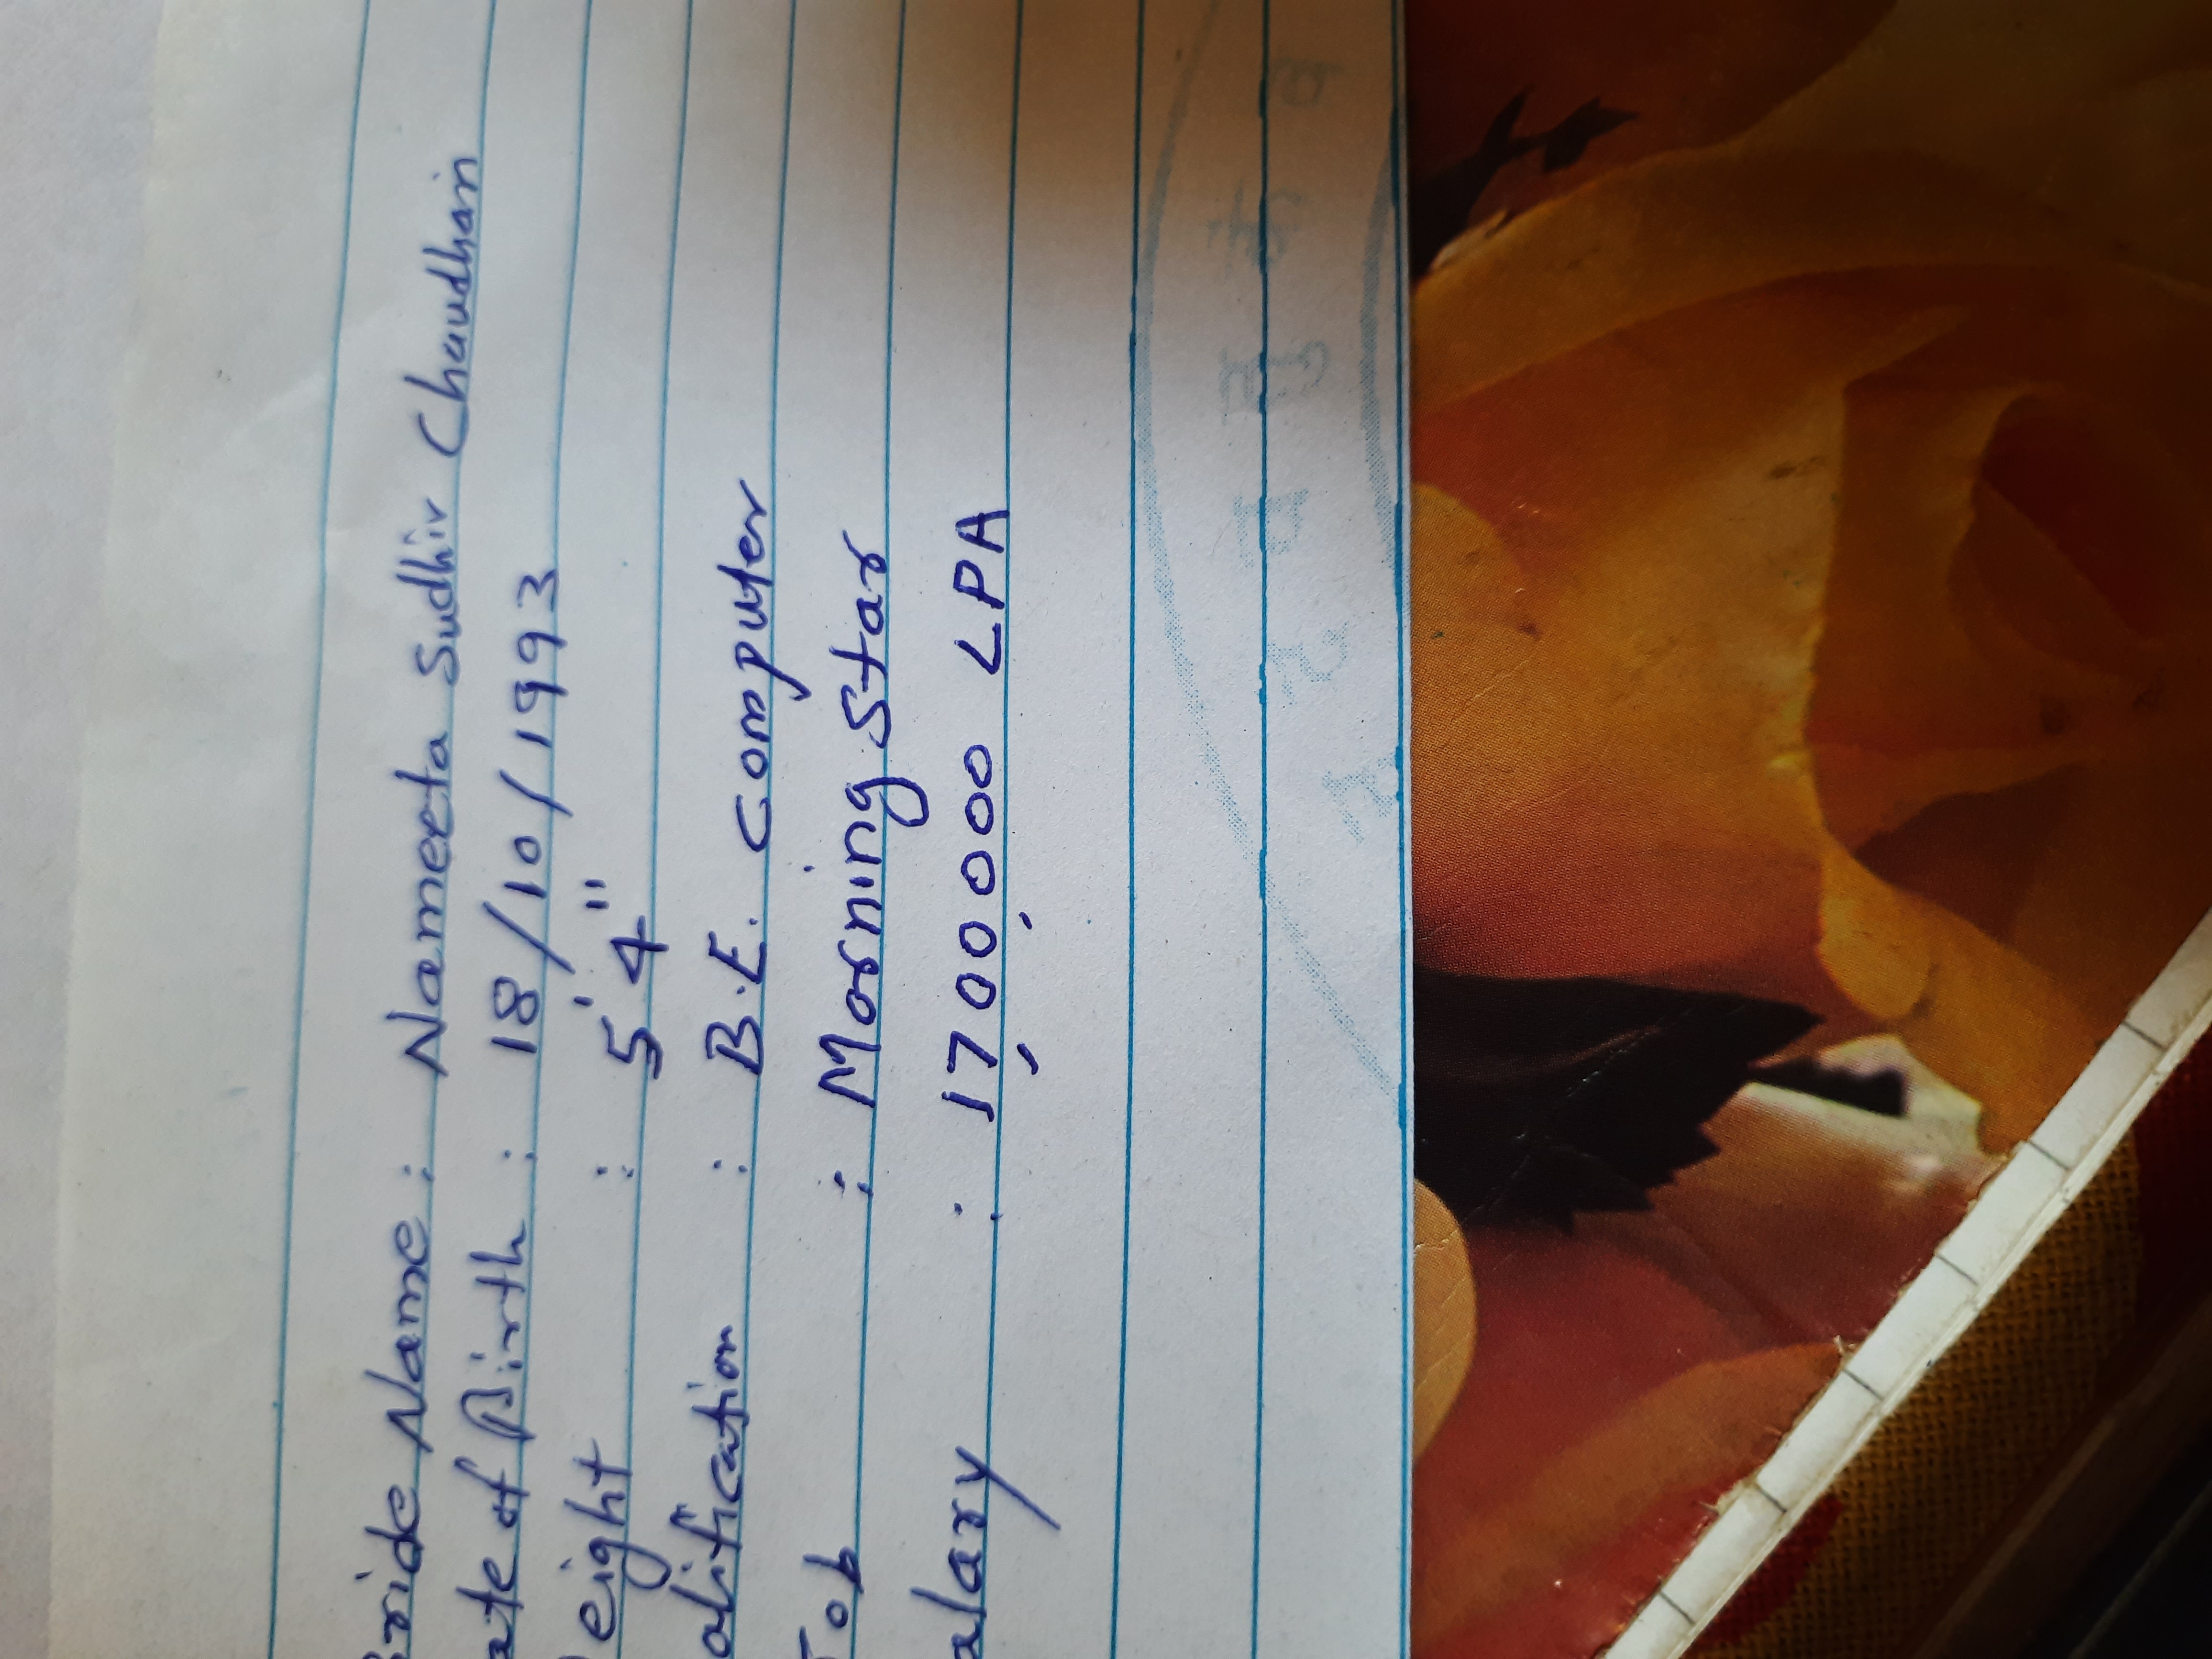 Bride Name : Nameeta Sudhir Chaudhari
ate of Birth : 18/10/1993
eight : 5' 4"
alification : B.E. Computer
Job : Morning Star
alary : 17,00,000 LPA